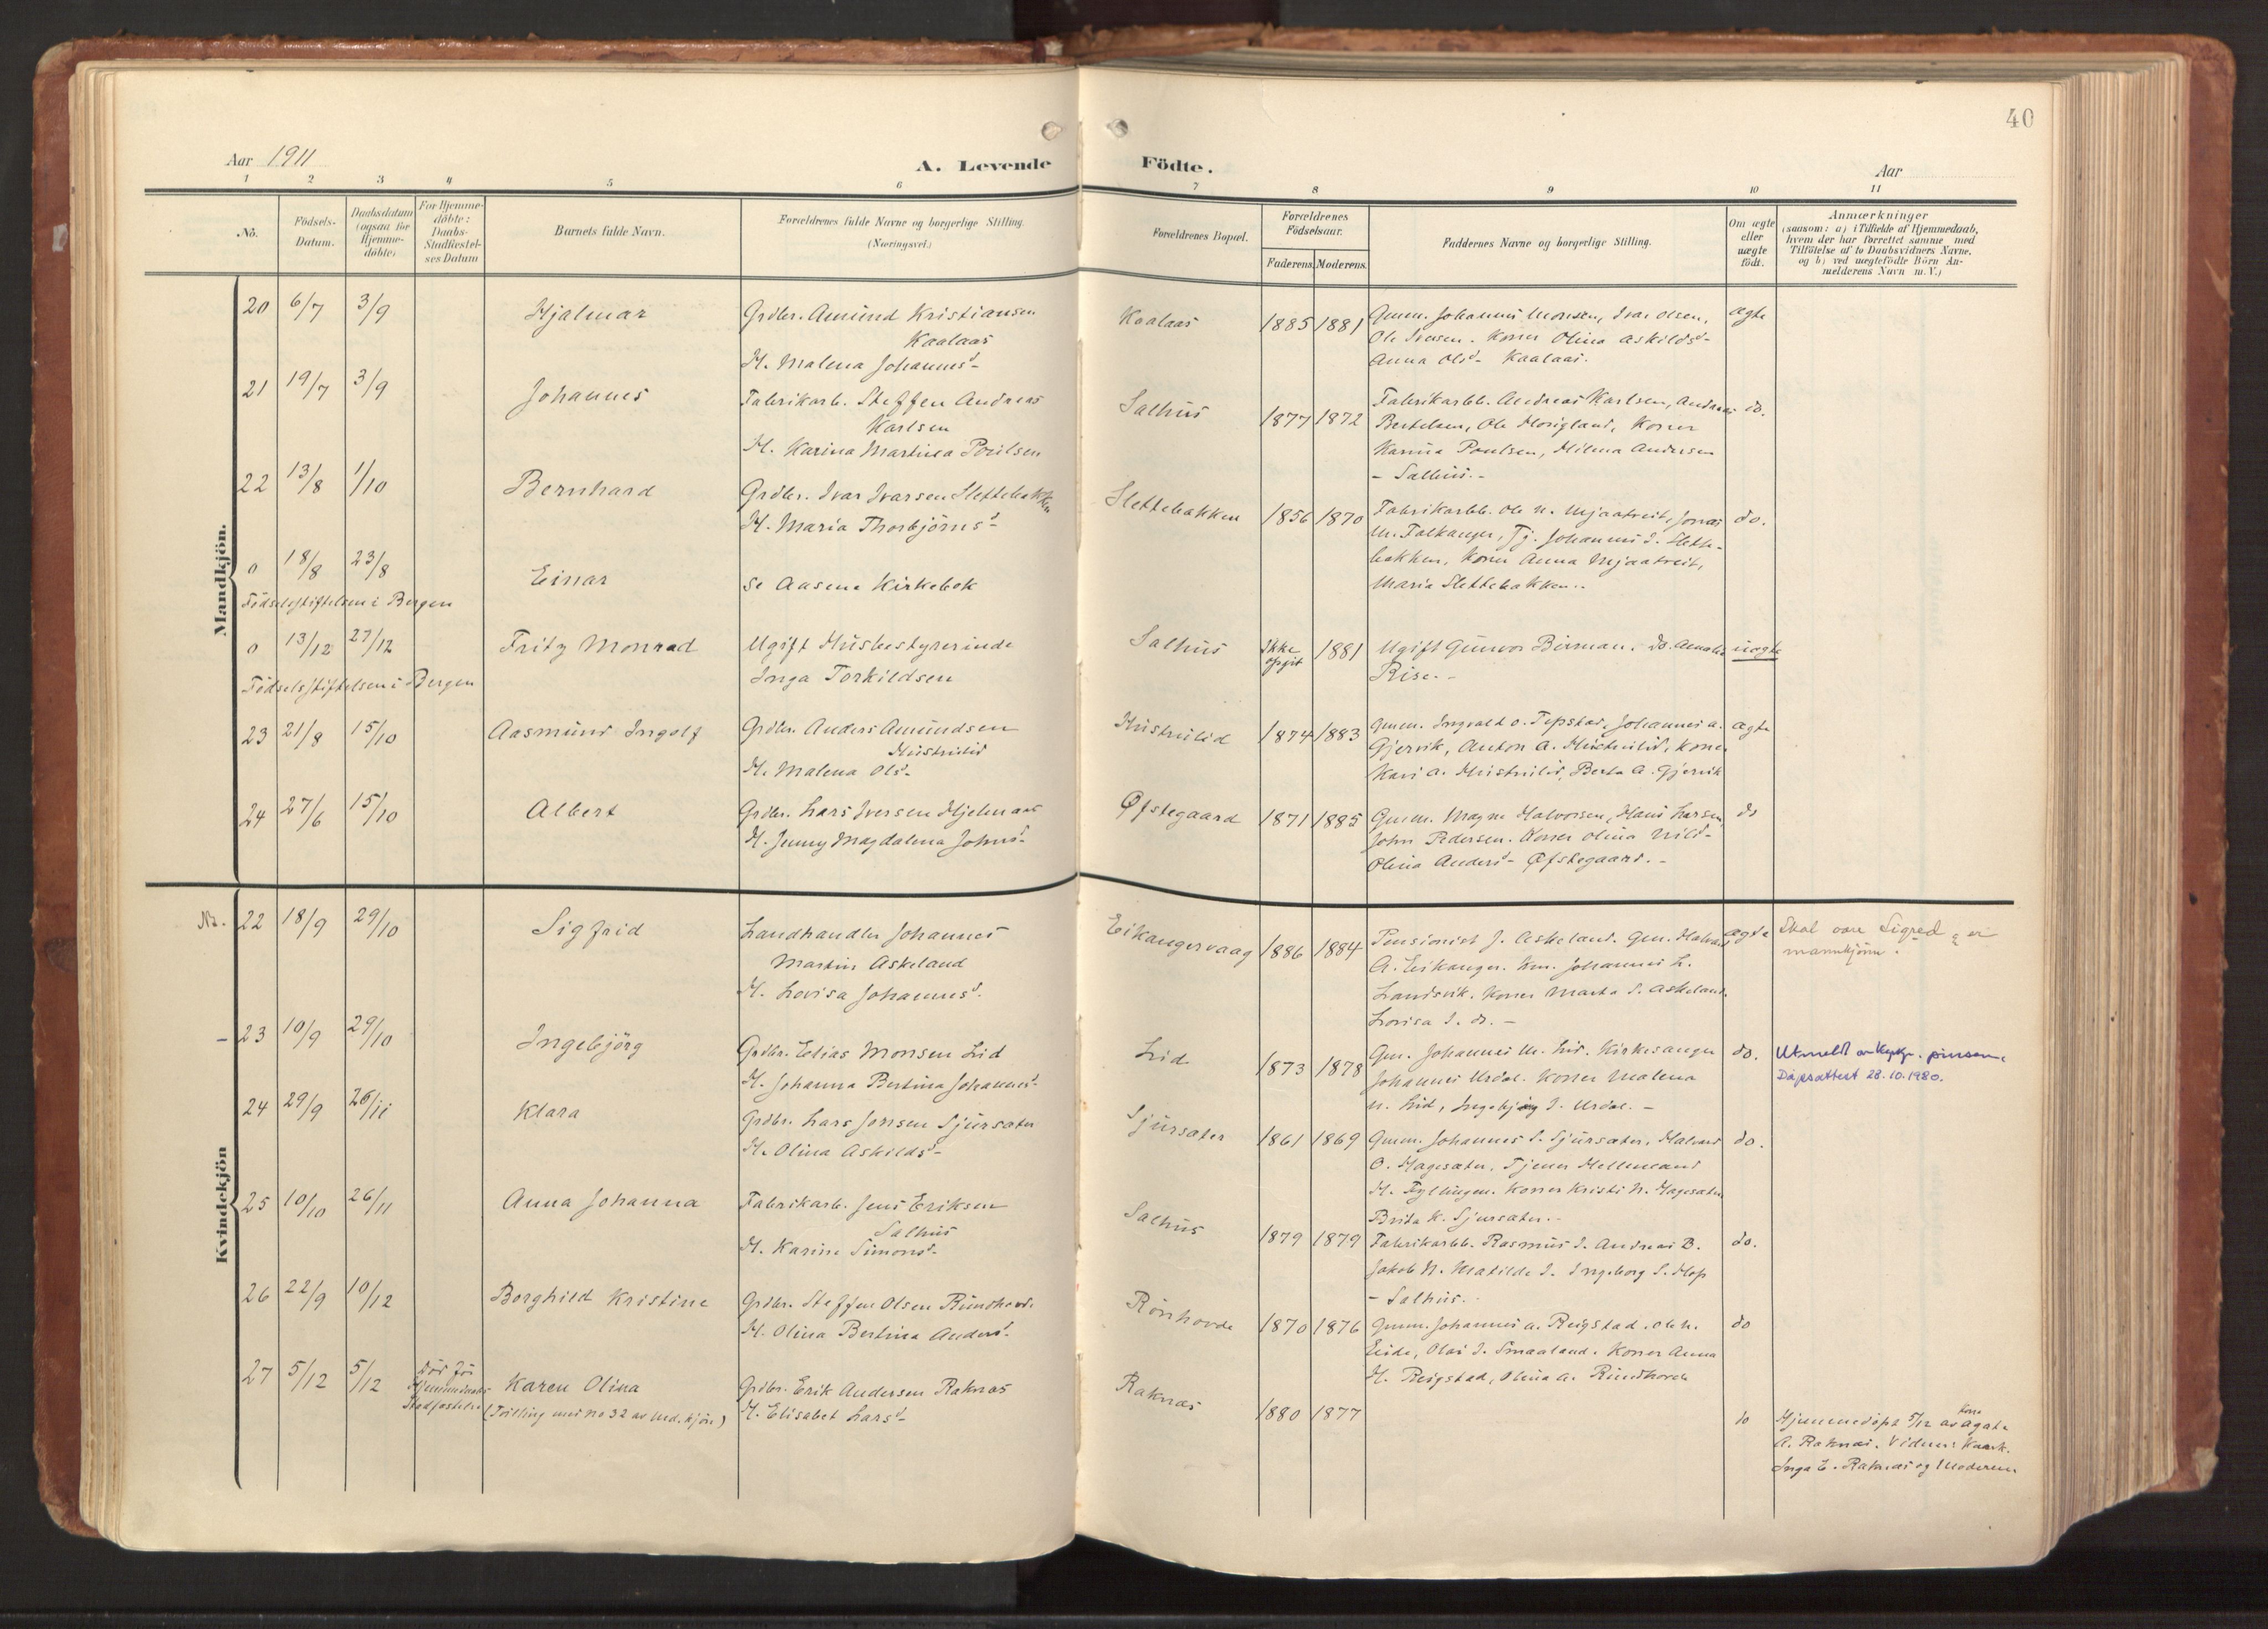 40
Aar 1911
A. Levende Födte.
Aar
1 2 3 4 5 6 7 8 9 10 11
No.
Födsels-Datum.
Daabsdatum (ogsaa for Hjemme-döbte)
For Hjemme-döbte: Daabs-Stadfæstel-ses Datum
Barnets fulde Navn.
Forældrenes fulde Navne og borgerlige Stilling. (Næringsvei.)
Forældrenes Bopæl.
Forældrenes Födselsaar.
Faderens. Moderens.
Faddernes Navne og borgerlige Stilling.
Om ægte eller uægte födt.
Anmærkninger
(saasom: a) i Tilfælde af Hjemmedaab,
hvem der har forrettet samme med
Tilföielse af to Daabsvidners Navne.
og b) ved uægtefödte Börn An-
melderens Navn m.V.)
Mandkjön.
20 6/7 3/9 Hjalmar Grdbr. Amund Kristiansen Kaalaas 1885 1881 Gmm. Johannes Monsen, Ivar Olsen, ægte
Kaalaas Ole Iversen. Koner Olina Askildsd-
H. Malena Johannesd- Anna Olsd- Kaalaas.
21 19/7 3/9 Johannes Fabrikarb. Steffen Andreas Salhus 1877 1872 Fabrikarbb. Andreas Karlsen, Andreas do.
Karlsen Bertelsen, Ole Horigland, Koner
H. Karina Martina Poulsen Karina Poulsen, Hilma Andersen
- Salhus.-
22 13/8 1/10 Bernhard Grdbr. Ivar Ivarsen Slettebakken Slettebakken 1856 1870 Fabrikarbb. Ole N. Mjaatveit, Jonas do.
H. Maria Thorbjörnsd- M. Falkanger, Tj. Johannes I. Slette-
bakken, Koner Anna Mjaatveit,
Maria Slettebakken..
0 18/8 23/8 Einar se Aasene Kirkebok
Födselsstiftelsen i Bergen
0 13/12 27/12 Fritz Monrad Ugift Husbestyrerinde Salhus Ikke opgit 1881 Ugift Gunvor Birman. do. Amalie uægte
Inga Torkildsen Rise.-
Födselsstiftelsen i Bergen
23 21/8 15/10 Aasmund Ingolf Grdbr. Anders Amundsen Hustrulid 1874 1883 Gmm. Ingvald O. Tepstad, Johannes A. ægte
Hustrulid Gjervik, Anton A. Hustrulid, Koner
H. Malena Olsd- Kari A. Hustrulid, Berta A. Gjervik
24 27/6 15/10 Albert Grdbr. Lars Iversen Hjelmaas Øfstegaard 1871 1885 Gmm. Magne Halvorsen, Hans Larsen do
H. Jenny Magdalena Johnsd- John Pedersen. Koner Olina Nilsd-
Olina Andersd- Øfstegaard.-
Kvindekjön
Nb. 22 18/9 29/10 Sigfrid Landhandler Johannes Eikangervaag 1886 1884 Pensionist J. Askeland. Gm. Halvor ægte Skal være Sigred - er
Martin Askeland A. Eikanger. Km. Johannes L. mannkjönn.
H. Lovisa Johannesd. Landsvik. Koner Marta S. Askeland.
Lovisa I. do.-
- 23 10/9 29/10 Ingebjörg Grdbr. Elias Monsen Lid Lid 1873 1878 Gm. Johannes M. Lid. Kirkesanger do.
H. Johanna Bertina Johannesd- Johannes Urdal. Koner Malena Dåpsattest 28.10.1980.
N. Lid, Ingebjørg I. Urdal.-
24 29/9 26/11 Klara Grdbr. Lars Jonsen Sjursæter Sjursæter 1861 1869 Gmm. Johannes S. Sjursæter, Halvard do.
H. Olina Askildsd- O. Hagesæter, Tjener Hellemand
H. Fyllingen. Koner Kristi N. Hagesæter
Brita K. Sjursæter.-
25 10/10 26/11 Anna Johanna Fabrikarb. Jens Eriksen Salhus 1879 1879 Fabrikarbb. Rasmus I. Andreas B. do.
Salhus Jakob N. Matilde I. Ingeborg S. Hop
H. Karine Simonsd- - Salhus.
26 22/9 10/12 Borghild Kristine Grdbr. Steffen Olsen Rundhovd. Rönhovde 1870 1876 Gmm. Johannes A. Reigstad. Ole N. do
H. Olina Bertina Andersd- Eide, Olai I. Smaaland. Koner Anna
H. Reigstad, Olina A. Rundhovde
27 5/12 5/12 död før Hjemmedaabs Stadfæstelse Karen Olina Grdbr. Erik Andersen Raknæs Raknæs 1880 1877 do Hjemmedöpt 5/12 av Kone Agate
(Tvilling med no 32 av Md. kjön) H. Elisabet Larsd- A. Raknæs. Vidner:
Inga E. Raknæs og Moderen